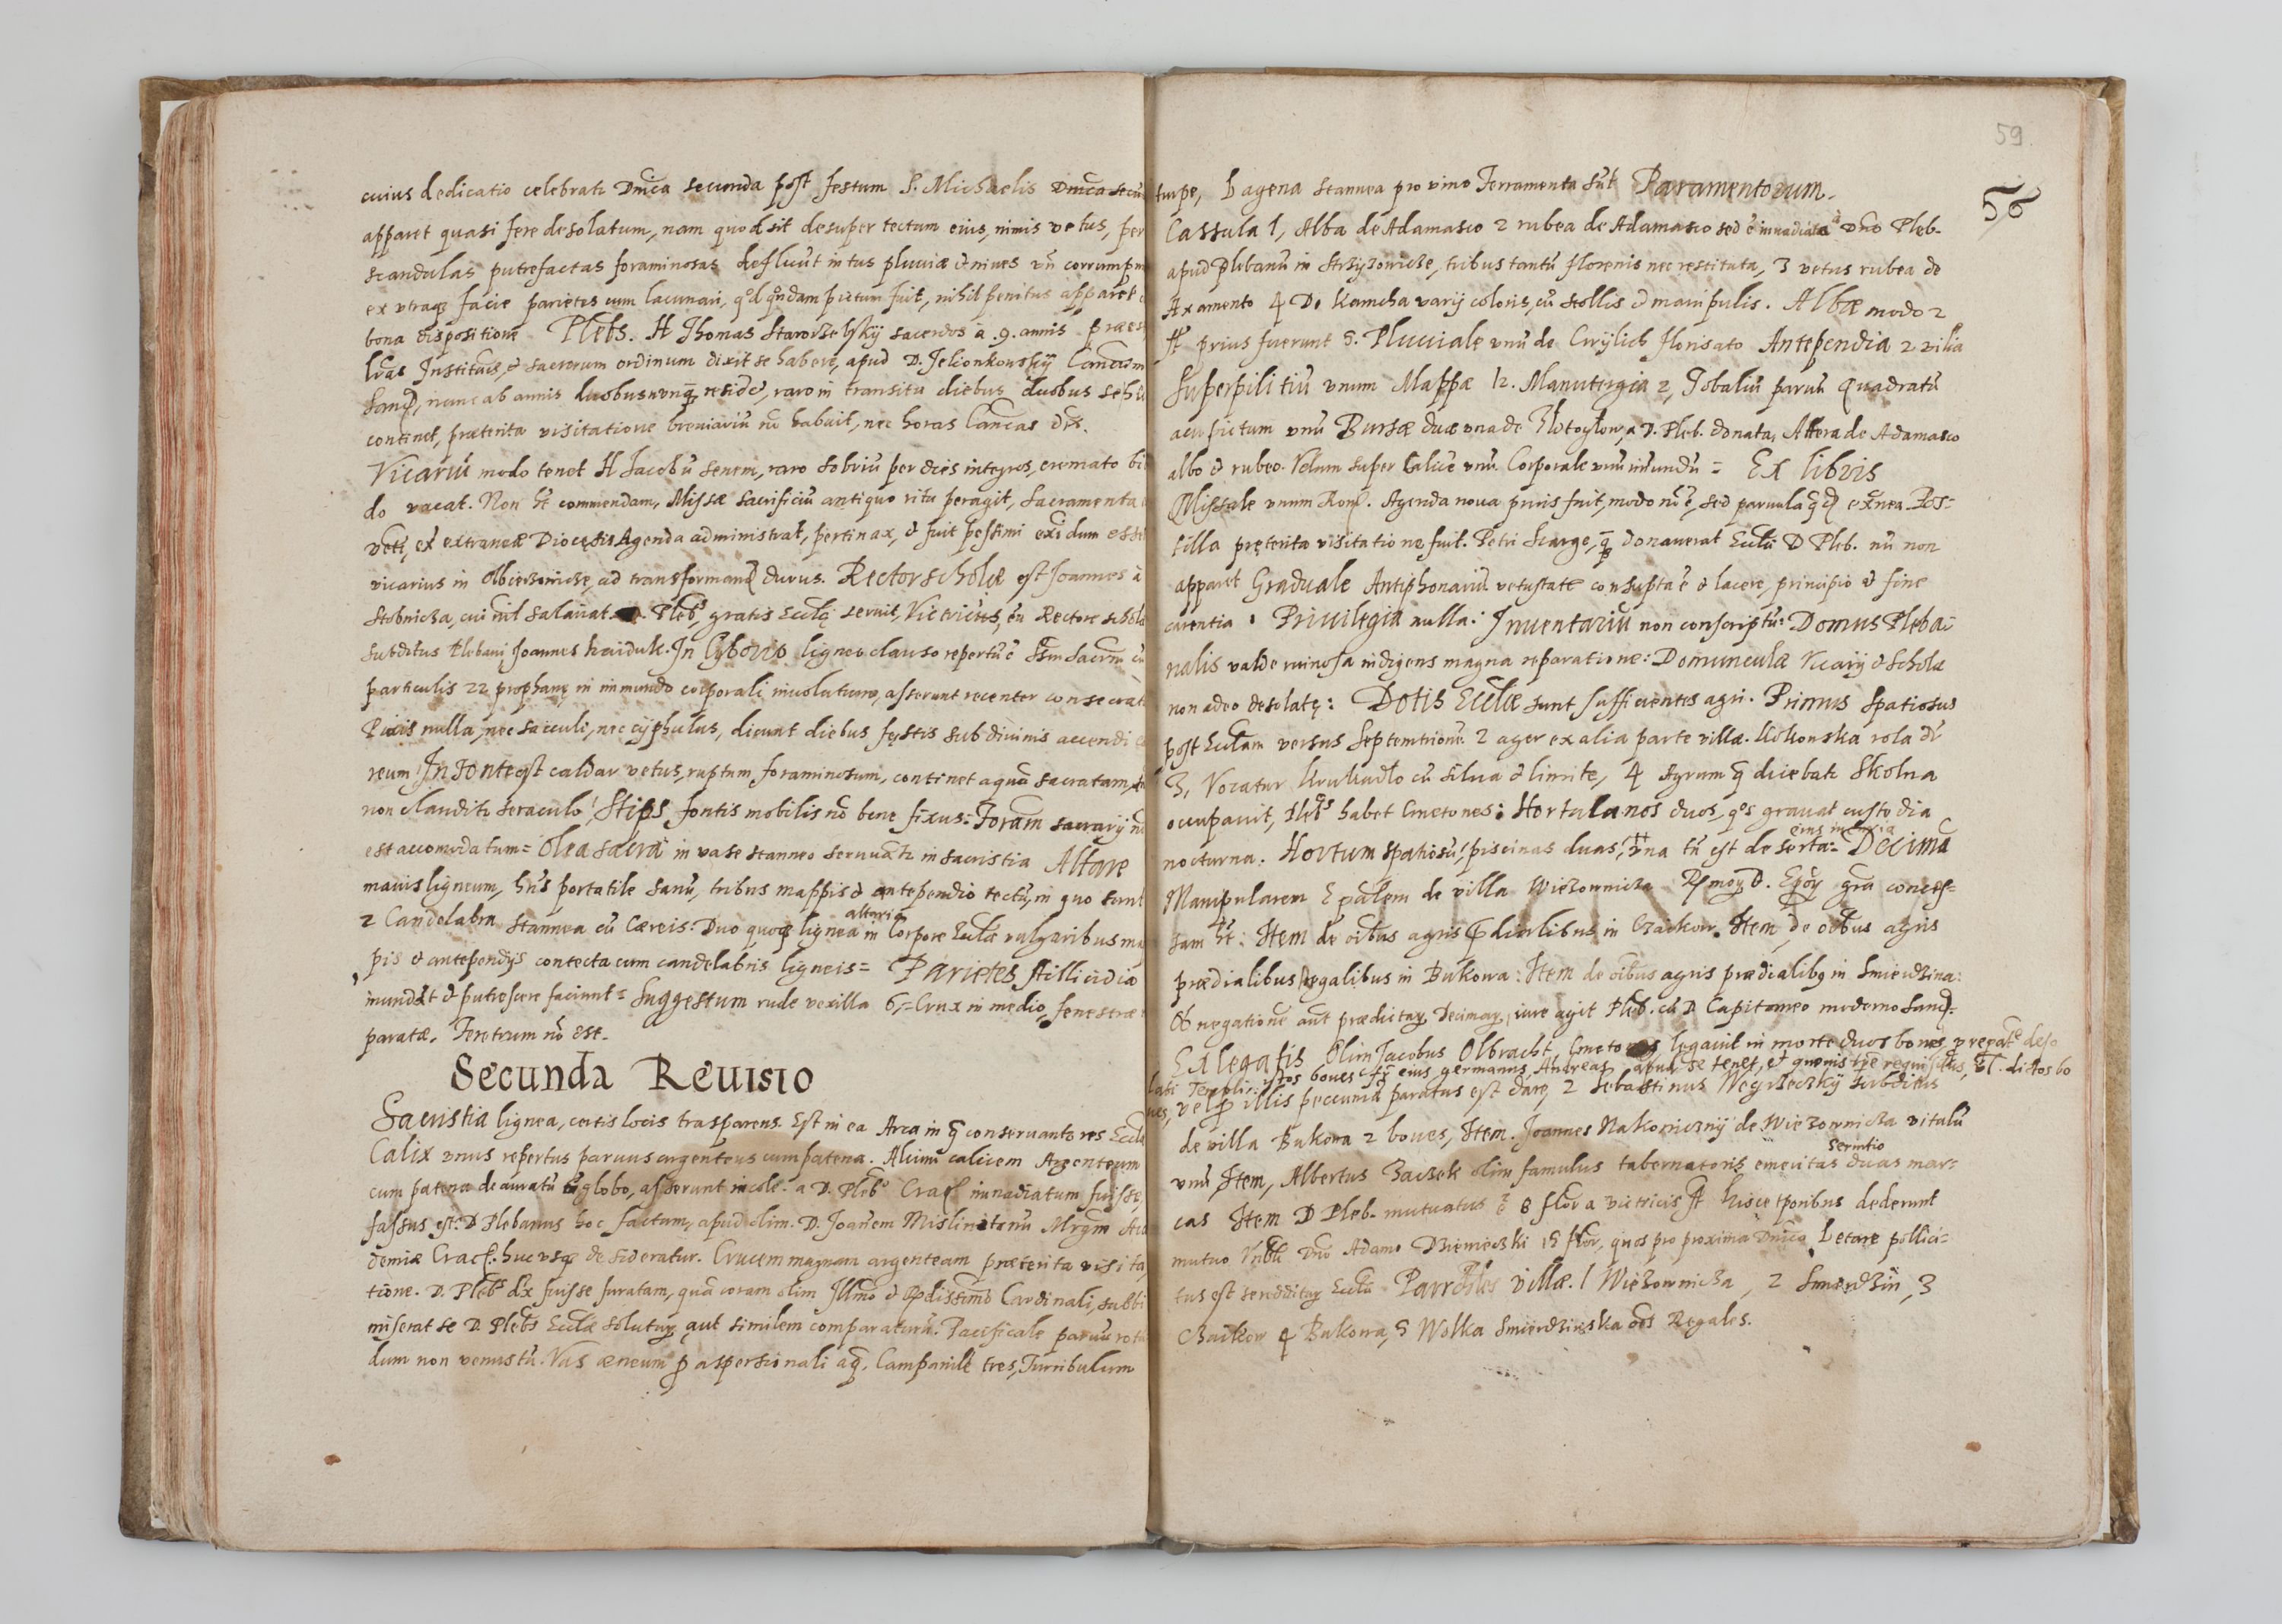 cuius dedicatio celebratr Dnica secunda post festum S. Michaelis Dnica secu
apparet quasi fere desolatum, nam quod sit desuper tectum eius, nimis vetus, per
scandulas putrefactas foraminosas defluut intus pluuiæ et niues vn corrumpu
ex utraque facie parietes cum lacunari, qd quondam pictum fuit, nihil penitus apparet
bona dispositione Plebs. H Thomas Starorzelsky sacerdos a .9. annis præe
lras Institnis, et sacrorum ordinum dixit se habere, apud D. Jelionkowsky
Sand, nunc ab annis duobus nunq residet, raro in transitu diebus duobus se hic
continet, præterita visitatione breuiariũ nõ habuit, nec horas Cancas dix.
Vicariũ modo tenet H Jacobũ senem, raro sobriũ per dies integros, cremato bi
do vacat. Non ht commendam, Missæ sacrificiũ antiquo ritu peragit, Sacramenta
vett, ex extraneæ Diocęsis Agenda administrat, pertinax, et fuit pessimi exi dum esset
vicarius in Olbierzowicze, ad transformand durus. Rector scholæ est Joannes à
Stobnicza, cui nil salariat Plebs, gratis Eccle seruit, Victricus, cu Rectore schol
subditus Plebani Joannes haiduk. In Cyborio ligneo clauso repertũ ẽ SSm Sacrm cu
particulis 22 prophanę in immundo corporali inuolutum, asserunt recenter consecrat
Pixis nulla, nec sacculi, nec cyphulus, dicunt diebus festis sub diuinis accendi
reum In Fonte est caldar vetus, ruptum, foraminosum, continet aquã sacratam,
non clauditr seraculo, Stips fontis mobilis nõ bene fixus: Foram sacrarij nõ
est accomodatum= Olea sacra in vase stanneo seruantr in sacristia Altare
maius ligneum, hns portatile sanũ, tribus mappis et antependio tectũ, in quo sunt
2 Candelabra stannea cũ Cæreis: Duo quoq lignea altaria in Corpore Ecclæ vulgaribus ma
pis et antependijs contecta cum candelabris ligneis= Parietes stillicidia
inundãt et putrescere faciunt= Suggestum rude vexilla 6,= Crux in medio, fenestræ
paratæ, Feretrum nõ est.
Secunda Reuisio
Sacristia lignea, certis locis trasparens. Est in ea Arca in q conseruantr res Eccle
Calix vnus repertus paruus argenteus cum patena. Alium calicem Argenteum
cum patena deauratũ globo, asserunt incole. a D. Plebo Crac inuadiatum fuisse,
fassus est: D Plebanus hoc factum, apud olim. D. Joanem Mislinitanũ Mrgm Aca
demiæ Crac. hucusq desideratur. Crucem magnam argenteam præterita visita
tione. D. Plebs dix fuisse furatam, quã coram olim Illmo et Rdissimo Cardinali, subbi
miserat se D. Plebs Ecclæ soluturũ aut similem comparaturũ. Pacificale paruũ rotũ
dum non venustũ. Vas æneum p aspersionali aq. Campanilæ tres, Turribulum
59
56
turpe, Lagena stannea pro vino Ferramenta sũt Paramentorum.
Cassula 1, Alba de Adamasco 2 rubea de Adamasco sed ẽ inuadiata à Dno Pleb.
apud Plebanũ in Strzyzowicze, tribus tantũ florenis nec restituta, 3 vetus rubea de
Axamento 4 De Kamcha varij coloris, cũ stollis et manipulis. Albæ modo 2
st prius fuerunt 5. Pluuiale vnũ de Cwylich florisato Antependia 2 vilia
Superpilitiũ vnum Mappæ 12. Manutergia 2, Tobaliũ paruũ quadratũ
acupictum vnũ Bursæ duæ vna de Zlotoglow, a D. Pleb. donata, Altera de Adamasco
albo et rubeo. Velum super Calice vnũ Corporale vnũ mundũ = Ex libris
Missale vnum Rom. Agenda noua prius fuit, modo nõ ẽ, sed paruula qd extnea. Pos=
tilla pręterita visitatione fuit. Petri Scarge, q donauerat Ecclæ D Pleb. nũ non
apparet Graduale Antiphonariũ vetustate consupta ẽ et lacere, principio et fine
carentia. Priuilegia nulla: Inuentariũ non conscriptũ: Domus Pleba=
nalis valde ruinosa indigens magna reparatione: Domunculæ Vicarij et Scholæ
non adeo desolatę: Dotis Ecclæ sunt sufficientes agri. Primus spatiosus
post Ecclam versus Septemtrionẽ 2 ager ex alia parte villæ. Kokoska rola dr
3, Vocatur Krukadlo cũ silua et limite, 4 Agrum q dicebatr Skolna
occupauit, Plebs habet Cmetones: Hortulanos duos, qos grauat custodia
nocturna. Hortum spatiosũ, piscinas duas, vna tñ est deserta= Decimã
Manipularem Epalem de villa Wiezownicza Rssmor D. Epor gra conces=
sam ht: Item de oibus agris pdialibus in Czaikow. Item de oibus agris
prædialibus regalibus in Bukowa: Item de oibus agris prædialibus in Smierdzina:
Ob negationẽ aut prædictar Decimar, iure agit Pleb. cũ D Capitaneo moderno Sand.
Ex legatis Olim Jacobus Olbracht, legauit in morte duos boues, p repatte deso
lati Templi: istos boues fr eius germanus, Andreas apud se tenet, dictos bo
ues, vel p illis peccuniã paratus est dare, 2 Sebastinus Wegrzeczky subditus
de villa Bukowa 2 boues, Item. Joannes Nakoniczny de Wiezownicza vitulũ
vnũ Item, Albertus Zaczek olim famulus tabernatoris emeritas seruitio duas mar=
cas Item D Pleb. mutuatus ẽ 8 flor a victricis st hisce tporibus dederunt
mutuo Dno Adamo Dziemieczki 15 flor, quos pro proxima Dnica Letare pollici=
tus est Ecclæ Parrchiles villæ. 1 Wiezownicza, 2 Smierdzin, 3
Czaikow 4 Bukowa, 5 Wolka Smierdzinska oes Regales.